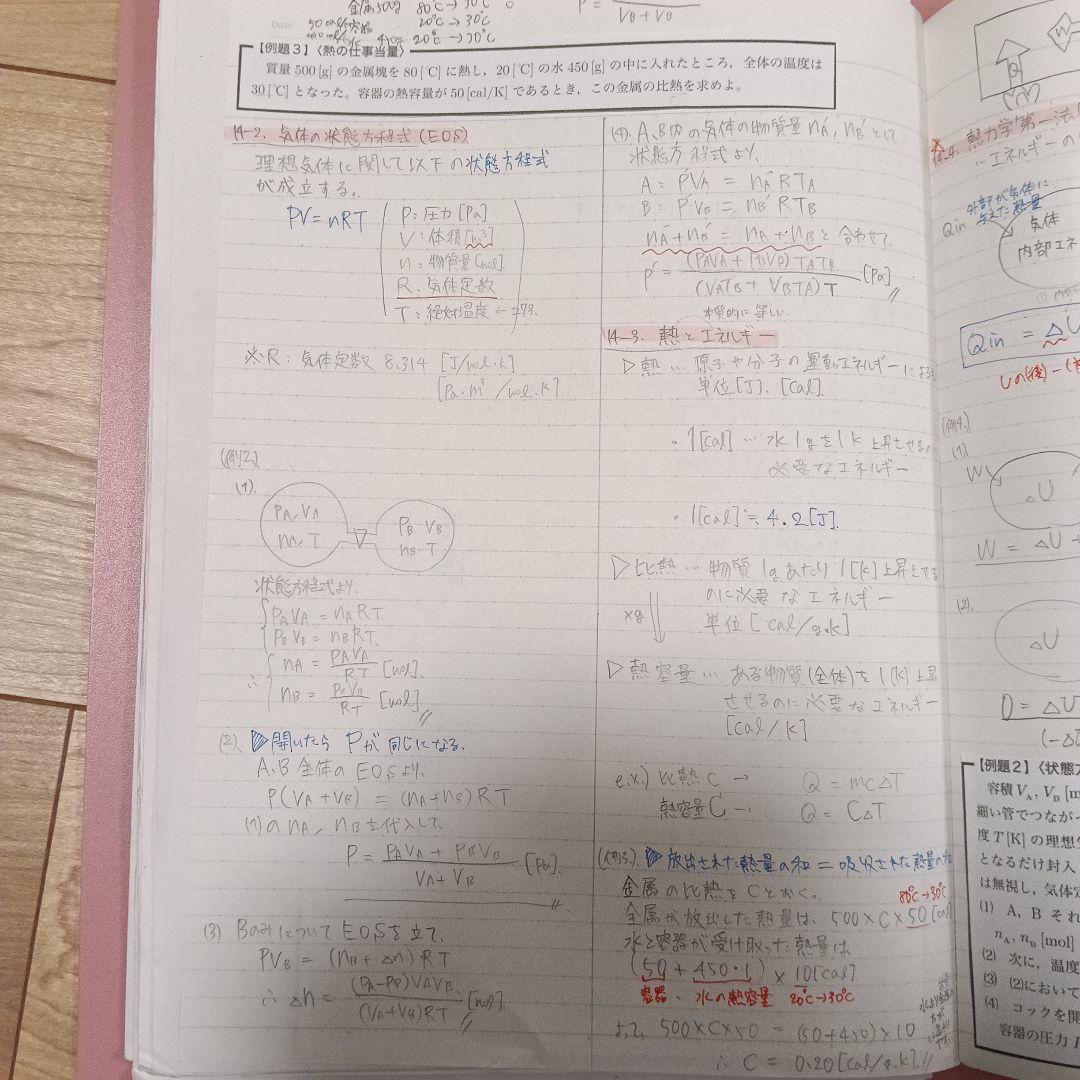 金属500g 80℃→30℃
50cal/K容器 20℃→30℃
水 450g 20℃→30℃
P =
VB+VB
Date
【例題3】〈熱の仕事当量〉
質量500[g]の金属塊を80[℃]に熱し，20[℃]の水450[g]の中に入れたところ，全体の温度は
30[℃]となった。容器の熱容量が50[cal/K]であるとき，この金属の比熱を求めよ。
14-2. 気体の状態方程式(EOS)
理想気体に関して以下の状態方程式
が成立する。
PV=nRT
P：圧力[Pa]
V：体積[m³]
n：物質量[mol]
R：気体定数
T：絶対温度←273.
※R：気体定数 8.314 [J/mol・K]
[Pa・m³/mol・K]
(例2)
(1).
PA.VA
nA.T
PB.VB
nB.T
状態方程式より.
PAVA = nART
PBVB = nBRT.
∴ nA = PAVA/RT [mol].
nB = PBVB/RT [mol]
(2). ▷開いたら Pが同じになる.
A,B全体のEOSより.
P(VA+VB) = (nA+nB)RT
(1)のnA, nBを代入して.
P = PAVA+PBVB/VA+VB [Pa].
(3) BのみについてEOSを立て.
PVB = (nB+Δn)RT
∴ Δn = (PA-PB)VAVB/(VA+VB)RT [mol]
(4). A,B内の気体の物質量nA', nB'として
状態方程式より.
A：P'VA = nA'RTA
B：P'VB = nB'RTB
nA'+nB' = nA+nBと合わせて.
P' = (PAVA+PBVB)TATB/(VATB+VBTA)T [Pa]
本質的に等しい.
14-3. 熱とエネルギー
▷熱… 原子や分子の運動エネルギーによる
単位[J]. [cal].
・1[cal]… 水1gを1K上昇させるのに
必要なエネルギー
・1[cal]≒4.2[J].
▷比熱… 物質1gあたり1[K]上昇させる
のに必要なエネルギー
×g
単位[cal/g・K]
▷熱容量… ある物質(全体)を1[K]上昇
させるのに必要なエネルギー
[cal/K]
e.x.) 比熱c → Q = mcΔT
熱容量C → Q = CΔT
(例3). ▷放出された熱量の和=吸収された熱量の和
金属の比熱をCとおく。
80℃→30℃
金属が放出した熱量は、500×C×50[cal]
水と容器が受け取った熱量は
(50+450・1)×10[cal]
容器、水の熱容量 20℃→30℃
よって、500×C×50 = (50+450)×10
∴ C = 0.20[cal/g・K].
W
Q
14-4. 熱力学第一法
エネルギーの
外部が気体に
与えた熱量
Qin
気体
内部エネ
Qin = ΔU
Uの(後)-(前
(例4.
(1).
W
ΔU
W = ΔU +
(2).
ΔU
0 = ΔU
(-Δ
【例題2】〈状態方
容積VA，VB[m
細い管でつながー
度T[K]の理想
となるだけ封入
は無視し，気体定
(1) A，B それ
nA, nB[mol]
(2) 次に，温度
(3) (2)において
(4) コックを開
容器の圧力P